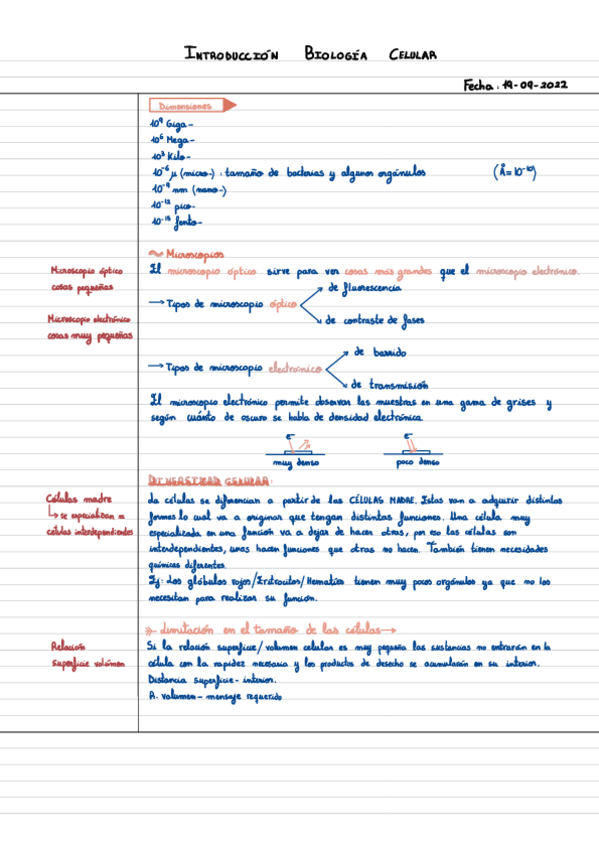 INTRODUCCIÓN BIOLOGÍA CELULAR
Fecha: 19-09-2022
Dimensiones
10⁹ Giga-
10⁶ Mega-
10³ Kilo-
10⁻⁶ μ (micro-) : tamaño de bacterias y algunos orgánulos (Å=10⁻¹⁰)
10⁻⁹ nm (nano-)
10⁻¹² pico-
10⁻¹⁵ femto-
Microscopios
Microscopio óptico
cosas pequeñas
Microscopio electrónico
cosas muy pequeñas
El microscopio óptico sirve para ver cosas más grandes que el microscopio electrónico.
→ Tipos de microscopio óptico
de fluorescencia
de contraste de fases
→ Tipos de microscopio electrónico
de barrido
de transmisión
El microscopio electrónico permite observar las muestras en una gama de grises y
según cuánto de oscuro se habla de densidad electrónica.
e⁻ e⁻
muy denso poco denso
DIVERSIDAD CELULAR:
Células madre
↳ se especializan en
células interdependientes
La células se diferencian a partir de las CÉLULAS MADRE. Estas van a adquirir distintas
formas lo cual va a originar que tengan distintas funciones. Una célula muy
especializada en una función va a dejar de hacer otras, por eso las células son
interdependientes, unas hacen funciones que otras no hacen. También tienen necesidades
químicas diferentes.
Ej: Los glóbulos rojos/Eritrocitos/Hematíes tienen muy pocos orgánulos ya que no los
necesitan para realizar su función.
Limitación en el tamaño de las células→
Relación
superficie volúmen
Si la relación superficie/volumen celular es muy pequeña las sustancias no entrarán en la
célula con la rapidez necesaria y los productos de desecho se acumularán en su interior.
Distancia superficie- interior.
R. volumen- mensaje requerido